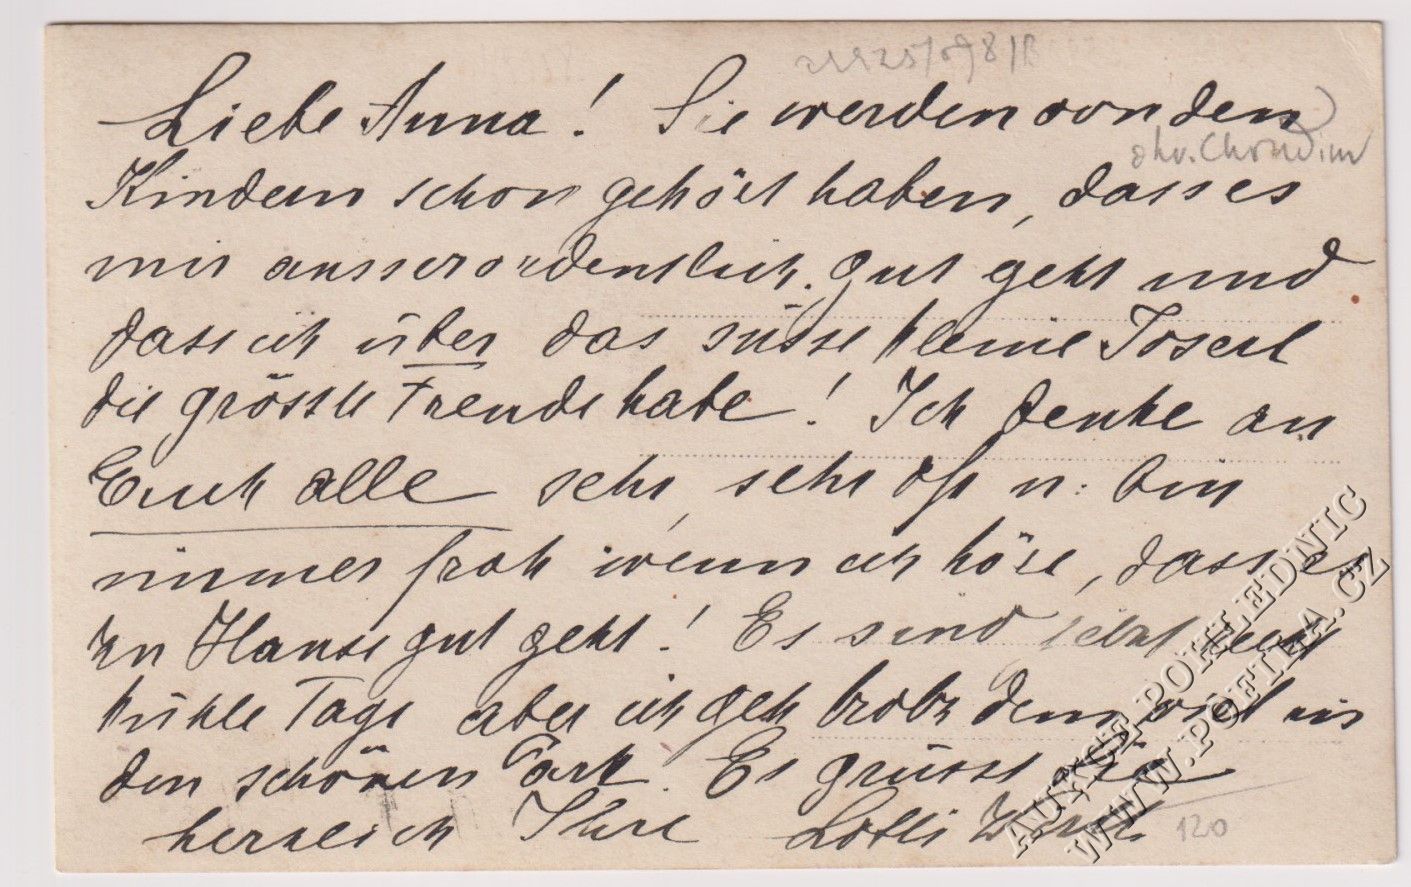 Liebe Anna! Sie werden von den
Kindern schon gehört haben, dass es
mir ausserordentlich gut geht und
dass ich über das süsse kleine Toserl
die grösste Freude habe! Ich denke an
Euch alle sehr, sehr oft u. bin
immer froh wenn ich höre, dass es
zu Hause gut geht! Es sind jetzt recht
kühle Tage aber ich geh trotzdem viel in
den schönen Park. Es grüsst Sie
herzlich Ihre Lotti
okr. Chrudim
120
AUKCE POHLEDNIC
WWW.POFILA.CZ